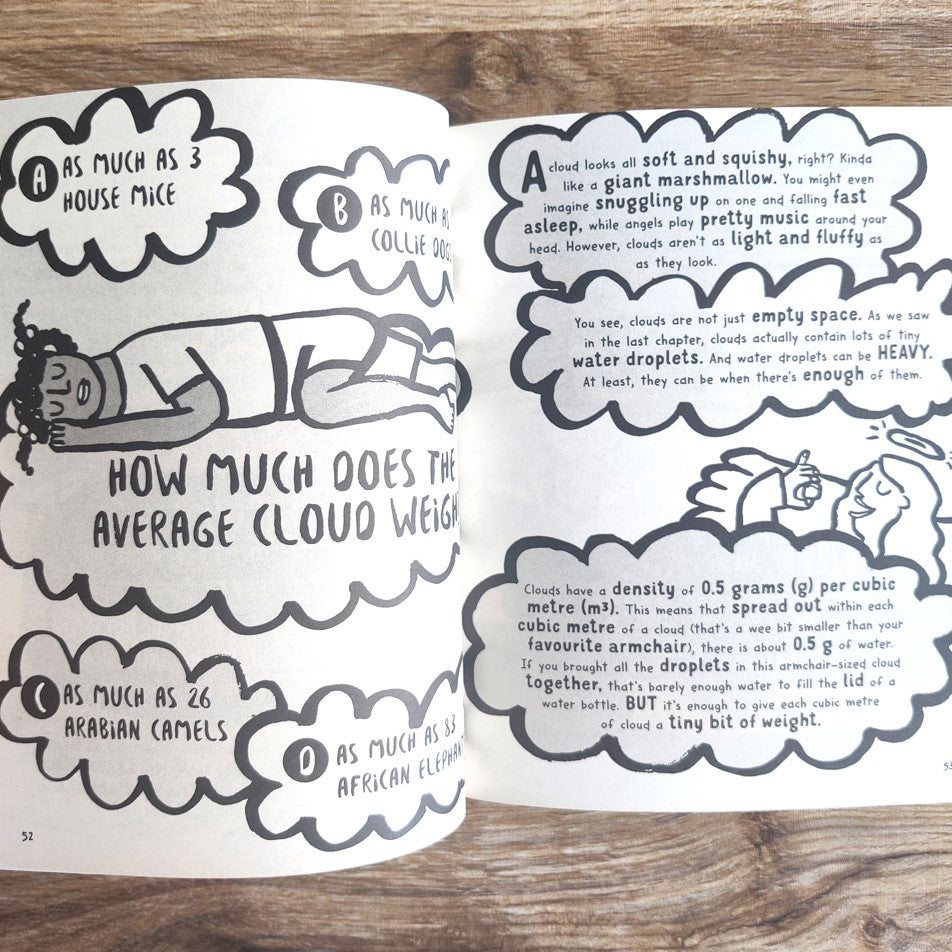 A AS MUCH AS 3
HOUSE MICE
B AS MUCH AS
COLLIE DOGS
HOW MUCH DOES THE
AVERAGE CLOUD WEIGH
C AS MUCH AS 26
ARABIAN CAMELS
D AS MUCH AS 83
AFRICAN ELEPHANT
52
A cloud looks all soft and squishy, right? Kinda
like a giant marshmallow. You might even
imagine snuggling up on one and falling fast
asleep, while angels play pretty music around your
head. However, clouds aren't as light and fluffy as
as they look.
You see, clouds are not just empty space. As we saw
in the last chapter, clouds actually contain lots of tiny
water droplets. And water droplets can be HEAVY.
At least, they can be when there's enough of them.
Clouds have a density of 0.5 grams (g) per cubic
metre (m³). This means that spread out within each
cubic metre of a cloud (that's a wee bit smaller than your
favourite armchair), there is about 0.5 g of water.
If you brought all the droplets in this armchair-sized cloud
together, that's barely enough water to fill the lid of a
water bottle. BUT it's enough to give each cubic metre
of cloud a tiny bit of weight.
53